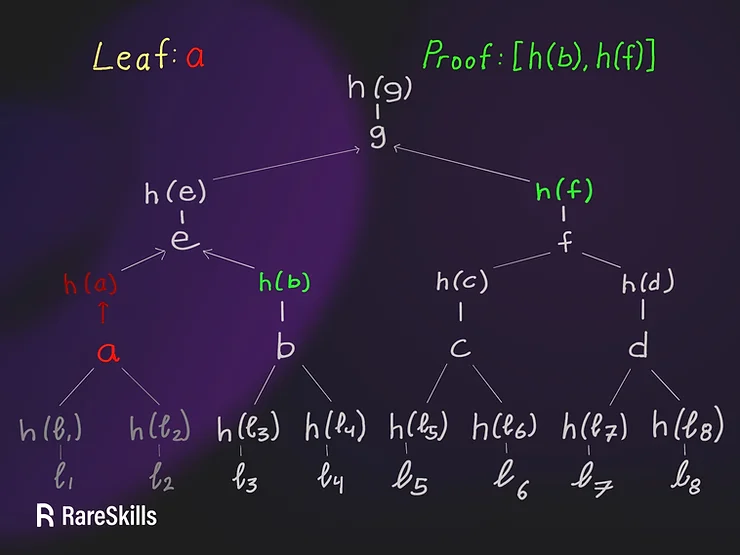 Leaf: a
Proof: [h(b), h(f)]
h(g)
g
h(e)
h(f)
e
f
h(a)
h(b)
h(c)
h(d)
a
b
c
d
h(ℓ₁) h(ℓ₂) h(ℓ₃) h(ℓ₄) h(ℓ₅) h(ℓ₆) h(ℓ₇) h(ℓ₈)
ℓ₁ ℓ₂ ℓ₃ ℓ₄ ℓ₅ ℓ₆ ℓ₇ ℓ₈
RareSkills